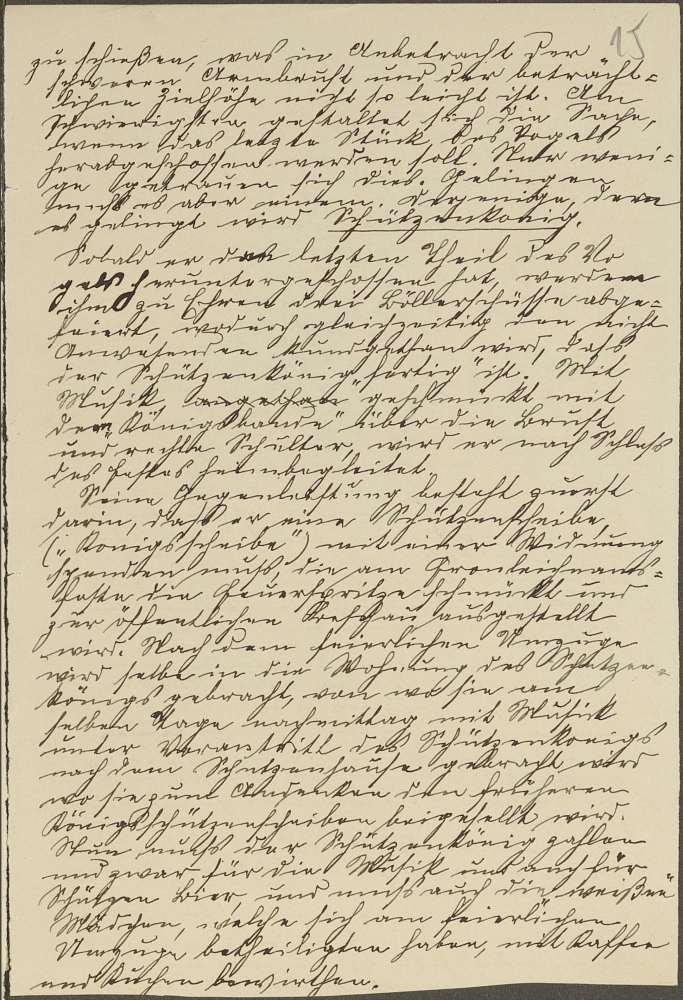 15
zu schießen, was in Anbetracht der
schweren Armbrust und der beträcht=
lichen Zielhöhe nicht so leicht ist. Am
Schwierigsten gestaltet sich die Sache,
wenn das letzte Stück des Vogels
herabgeschossen werden soll. Nur weni=
ge getrauen sich dies. Gelingen
muß es aber einem. Derjenige, dem
es gelingt wird Schützenkönig.
Sobald er den letzten Theil des Vo
gels heruntergeschossen hat, werden
ihm zu Ehren drei Böllerschüsse abge=
feuert, wodurch gleichzeitig den nicht
Anwesenden kundgethan wird, dass
der Schützenkönig "fertig" ist. Mit
Musik, angethan geschmückt mit
dem "Königsbande" über die Brust
und rechte Schulter, wird er nach Schluß
des Festes heimbegleitet.
Seine Gegenleistung besteht zuerst
darin, dass er eine Schützenscheibe
("Königsscheibe") mit einer Widmung
spenden muss die am Fronleichnams=
feste die Feuerspritze schmückt und
zur öffentlichen Beschau ausgestellt
wird. Nach dem feierlichen Umzuge
wird selbe in die Wohnung des Schützen=
königs gebracht, von wo sie am
selben Tage nachmittag mit Musik
unter Vorantritt des Schützenkönigs
nach dem Schützenhause gebracht wird
wo sie zum Andenken den früheren
Königsschützenscheiben beigesellt wird.
Nun muss der Schützenkönig zahlen
und zwar für die Musik und auch für
Schützen Bier, und muss auch die "weißen"
Mädchen, welche sich am feierlichen
Umzuge betheiligten haben, mit Kaffee
und Kuchen bewirthen.